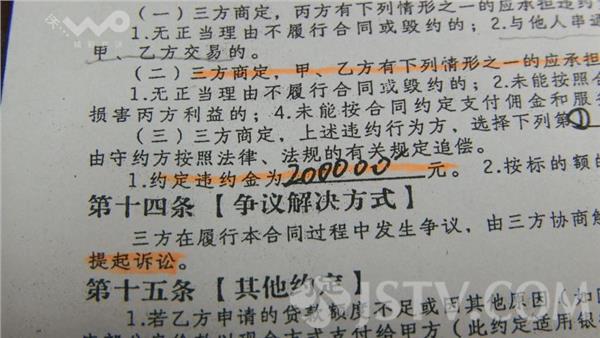 （一）三方商定，丙方有下列情形之一的应承担
1.无正当理由不履行合同或毁约的；2.与他人串通
甲、乙方交易的。
（二）三方商定，甲、乙方有下列情形之一的应承担
1.无正当理由不履行合同或毁约的；2.未能按照合
损害丙方利益的；4.未能按合同约定支付佣金和服
（三）三方商定，上述违约行为方，选择下列第①
由守约方按照法律、法规的有关规定追偿。
1.约定违约金为200000元。2.按标的额的
第十四条【争议解决方式】
三方在履行本合同过程中发生争议，由三方协商解
提起诉讼。
第十五条【其他约定】
1.若乙方申请的贷款额度不足或因其他原因（如
款以现金方式支付给甲方（此约定适用银
JSTV.COM